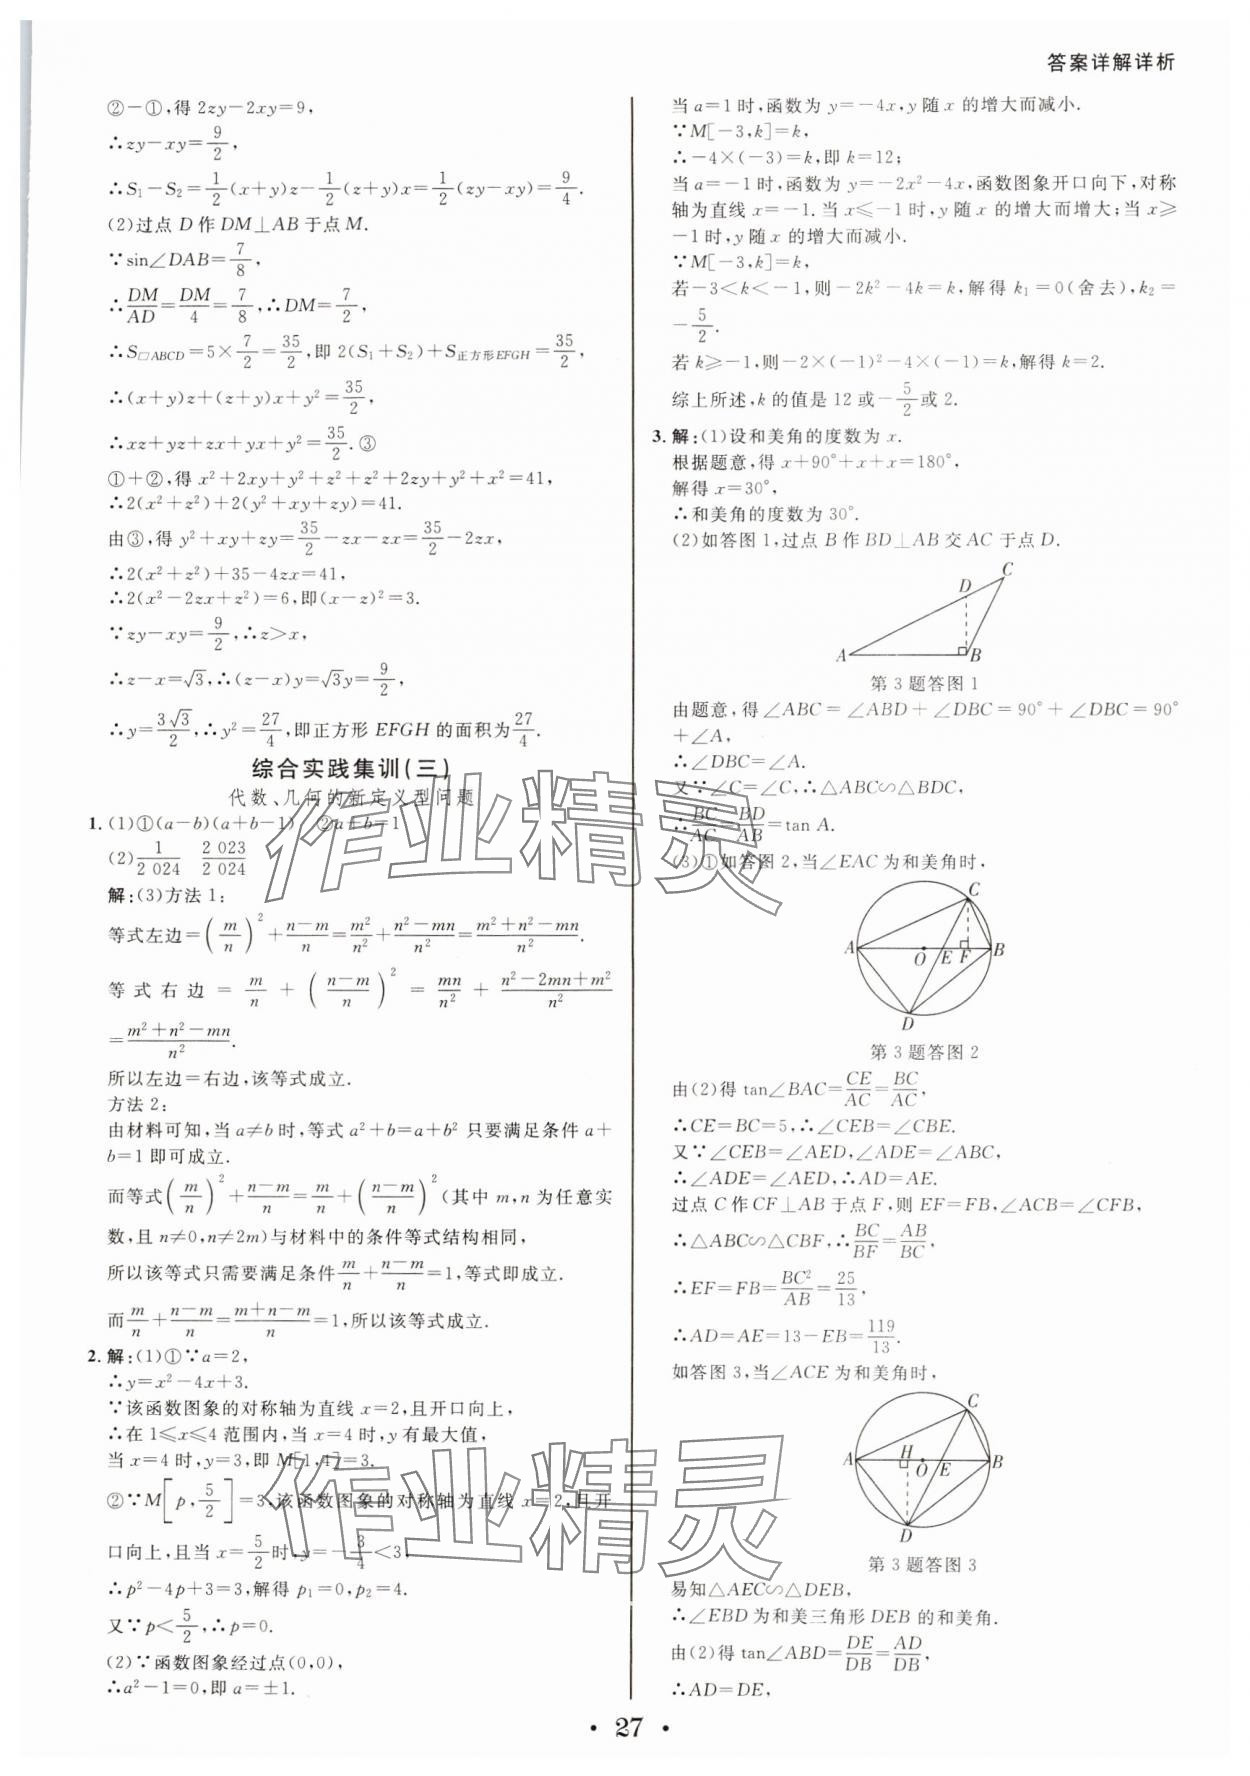 答案详解详析
②－①，得 2zy－2xy＝9，
∴zy－xy＝9/2，
∴S₁－S₂＝1/2(x＋y)z－1/2(z＋y)x＝1/2(zy－xy)＝9/4.
(2)过点 D 作 DM⊥AB 于点 M.
∵sin∠DAB＝7/8，
∴DM/AD＝DM/4＝7/8，∴DM＝7/2，
∴S□ABCD＝5×7/2＝35/2，即 2(S₁＋S₂)＋S正方形EFGH＝35/2，
∴(x＋y)z＋(z＋y)x＋y²＝35/2，
∴xz＋yz＋zx＋yx＋y²＝35/2.③
①＋②，得 x²＋2xy＋y²＋z²＋z²＋2zy＋y²＋x²＝41，
∴2(x²＋z²)＋2(y²＋xy＋zy)＝41.
由③，得 y²＋xy＋zy＝35/2－zx－zx＝35/2－2zx，
∴2(x²＋z²)＋35－4zx＝41，
∴2(x²－2zx＋z²)＝6，即(x－z)²＝3.
∵zy－xy＝9/2，∴z＞x，
∴z－x＝√3，∴(z－x)y＝√3y＝9/2，
∴y＝3√3/2，∴y²＝27/4，即正方形 EFGH 的面积为27/4.
综合实践集训(三)
代数、几何的新定义型问题
1. (1)①(a－b)(a＋b－1) ②a＋b＝1
(2)1/2 024 2 023/2 024
解：(3)方法 1：
等式左边＝(m/n)²＋n－m/n＝m²/n²＋n²－mn/n²＝m²＋n²－mn/n².
等式右边＝m/n＋(n－m/n)²＝mn/n²＋n²－2mn＋m²/n²
＝m²＋n²－mn/n².
所以左边＝右边，该等式成立.
方法 2：
由材料可知，当 a≠b 时，等式 a²＋b＝a＋b² 只要满足条件 a＋
b＝1 即可成立.
而等式(m/n)²＋n－m/n＝m/n＋(n－m/n)²(其中 m，n 为任意实
数，且 n≠0，n≠2m)与材料中的条件等式结构相同，
所以该等式只需要满足条件m/n＋n－m/n＝1，等式即成立.
而m/n＋n－m/n＝m＋n－m/n＝1，所以该等式成立.
2. 解：(1)①∵a＝2，
∴y＝x²－4x＋3.
∵该函数图象的对称轴为直线 x＝2，且开口向上，
∴在 1≤x≤4 范围内，当 x＝4 时，y 有最大值，
当 x＝4 时，y＝3，即 M[1,4]＝3.
②∵M[p，5/2]＝3，该函数图象的对称轴为直线 x＝2，且开
口向上，且当 x＝5/2时，y＝－3/4＜3，
∴p²－4p＋3＝3，解得 p₁＝0，p₂＝4.
又∵p＜5/2，∴p＝0.
(2)∵函数图象经过点(0,0)，
∴a²－1＝0，即 a＝±1.
当 a＝1 时，函数为 y＝－4x，y 随 x 的增大而减小.
∵M[－3，k]＝k，
∴－4×(－3)＝k，即 k＝12；
当 a＝－1 时，函数为 y＝－2x²－4x，函数图象开口向下，对称
轴为直线 x＝－1. 当 x≤－1 时，y 随 x 的增大而增大；当 x≥
－1 时，y 随 x 的增大而减小.
∵M[－3，k]＝k，
若－3＜k＜－1，则－2k²－4k＝k，解得 k₁＝0(舍去)，k₂＝
－5/2.
若 k≥－1，则－2×(－1)²－4×(－1)＝k，解得 k＝2.
综上所述，k 的值是 12 或－5/2或 2.
3. 解：(1)设和美角的度数为 x.
根据题意，得 x＋90°＋x＋x＝180°，
解得 x＝30°，
∴和美角的度数为 30°.
(2)如答图 1，过点 B 作 BD⊥AB 交 AC 于点 D.
C
D
A
B
第 3 题答图 1
由题意，得∠ABC＝∠ABD＋∠DBC＝90°＋∠DBC＝90°
＋∠A，
∴∠DBC＝∠A.
又∵∠C＝∠C，∴△ABC∽△BDC，
∴BC/AC＝BD/AB＝tan A.
(3)①如答图 2，当∠EAC 为和美角时，
C
A
O E F B
D
第 3 题答图 2
由(2)得 tan∠BAC＝CE/AC＝BC/AC，
∴CE＝BC＝5，∴∠CEB＝∠CBE.
又∵∠CEB＝∠AED，∠ADE＝∠ABC，
∴∠ADE＝∠AED，∴AD＝AE.
过点 C 作 CF⊥AB 于点 F，则 EF＝FB，∠ACB＝∠CFB，
∴△ABC∽△CBF，∴BC/BF＝AB/BC，
∴EF＝FB＝BC²/AB＝25/13，
∴AD＝AE＝13－EB＝119/13.
如答图 3，当∠ACE 为和美角时，
C
A
H
O E B
D
第 3 题答图 3
易知△AEC∽△DEB，
∴∠EBD 为和美三角形 DEB 的和美角.
由(2)得 tan∠ABD＝DE/DB＝AD/DB，
∴AD＝DE，
• 27 •
作业精灵
作业精灵